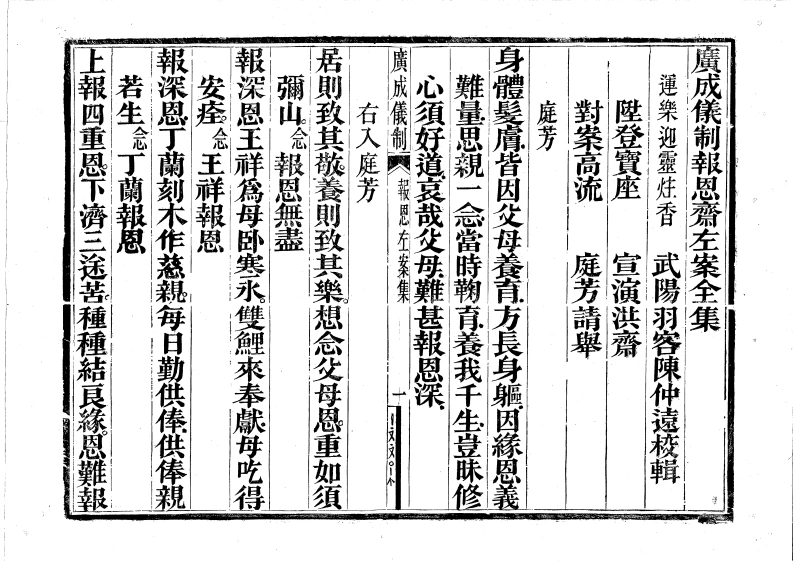 廣成儀制報恩齋左案全集
武陽羽客陳仲遠校輯
運樂迎靈炷香
陞登寶座　宣演洪齋
對案高流　庭芳請舉
庭芳
身體髮膚皆因父母養育方長身軀因緣恩義
難量思親一念當時鞠育養我千生豈昧修
心須好道哀哉父母難甚報恩深
廣成儀制　報恩左案集　一
右入庭芳
居則致其敬養則致其樂想念父母恩重如須
彌山念報恩無盡
報深恩王祥爲母卧寒氷雙鯉來奉獻母吃得
安痊念王祥報恩
報深恩丁蘭刻木作慈親每日勤供俸供俸親
若生念丁蘭報恩
上報四重恩下濟三途苦種種結良緣恩難報